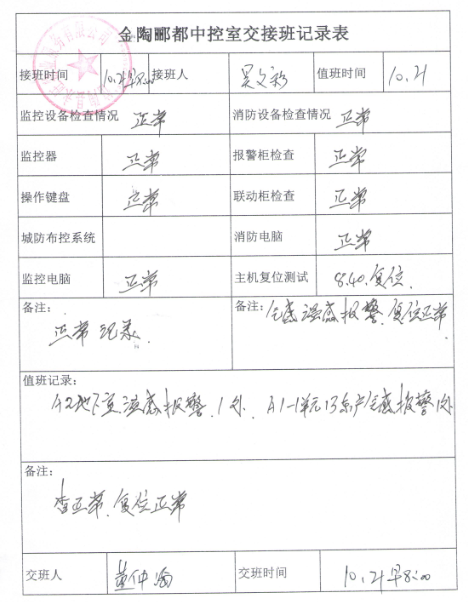 金陶郦都中控室交接班记录表
接班时间 10.21早8:00 接班人 值班时间 10.21
监控设备检查情况 正常 消防设备检查情况 正常
监控器 正常 报警柜检查 正常
操作键盘 正常 联动柜检查 正常
城防布控系统 消防电脑 正常
监控电脑 正常 主机复位测试 8.40.复位.
备注: 备注: 气感温感报警.复位正常
正常记录.
值班记录:
A2地下室温感报警.1处. A1-1单元13东户气感报警1处
备注:
查正常.复位正常
交班人 董仲海 交班时间 10.21早8:00